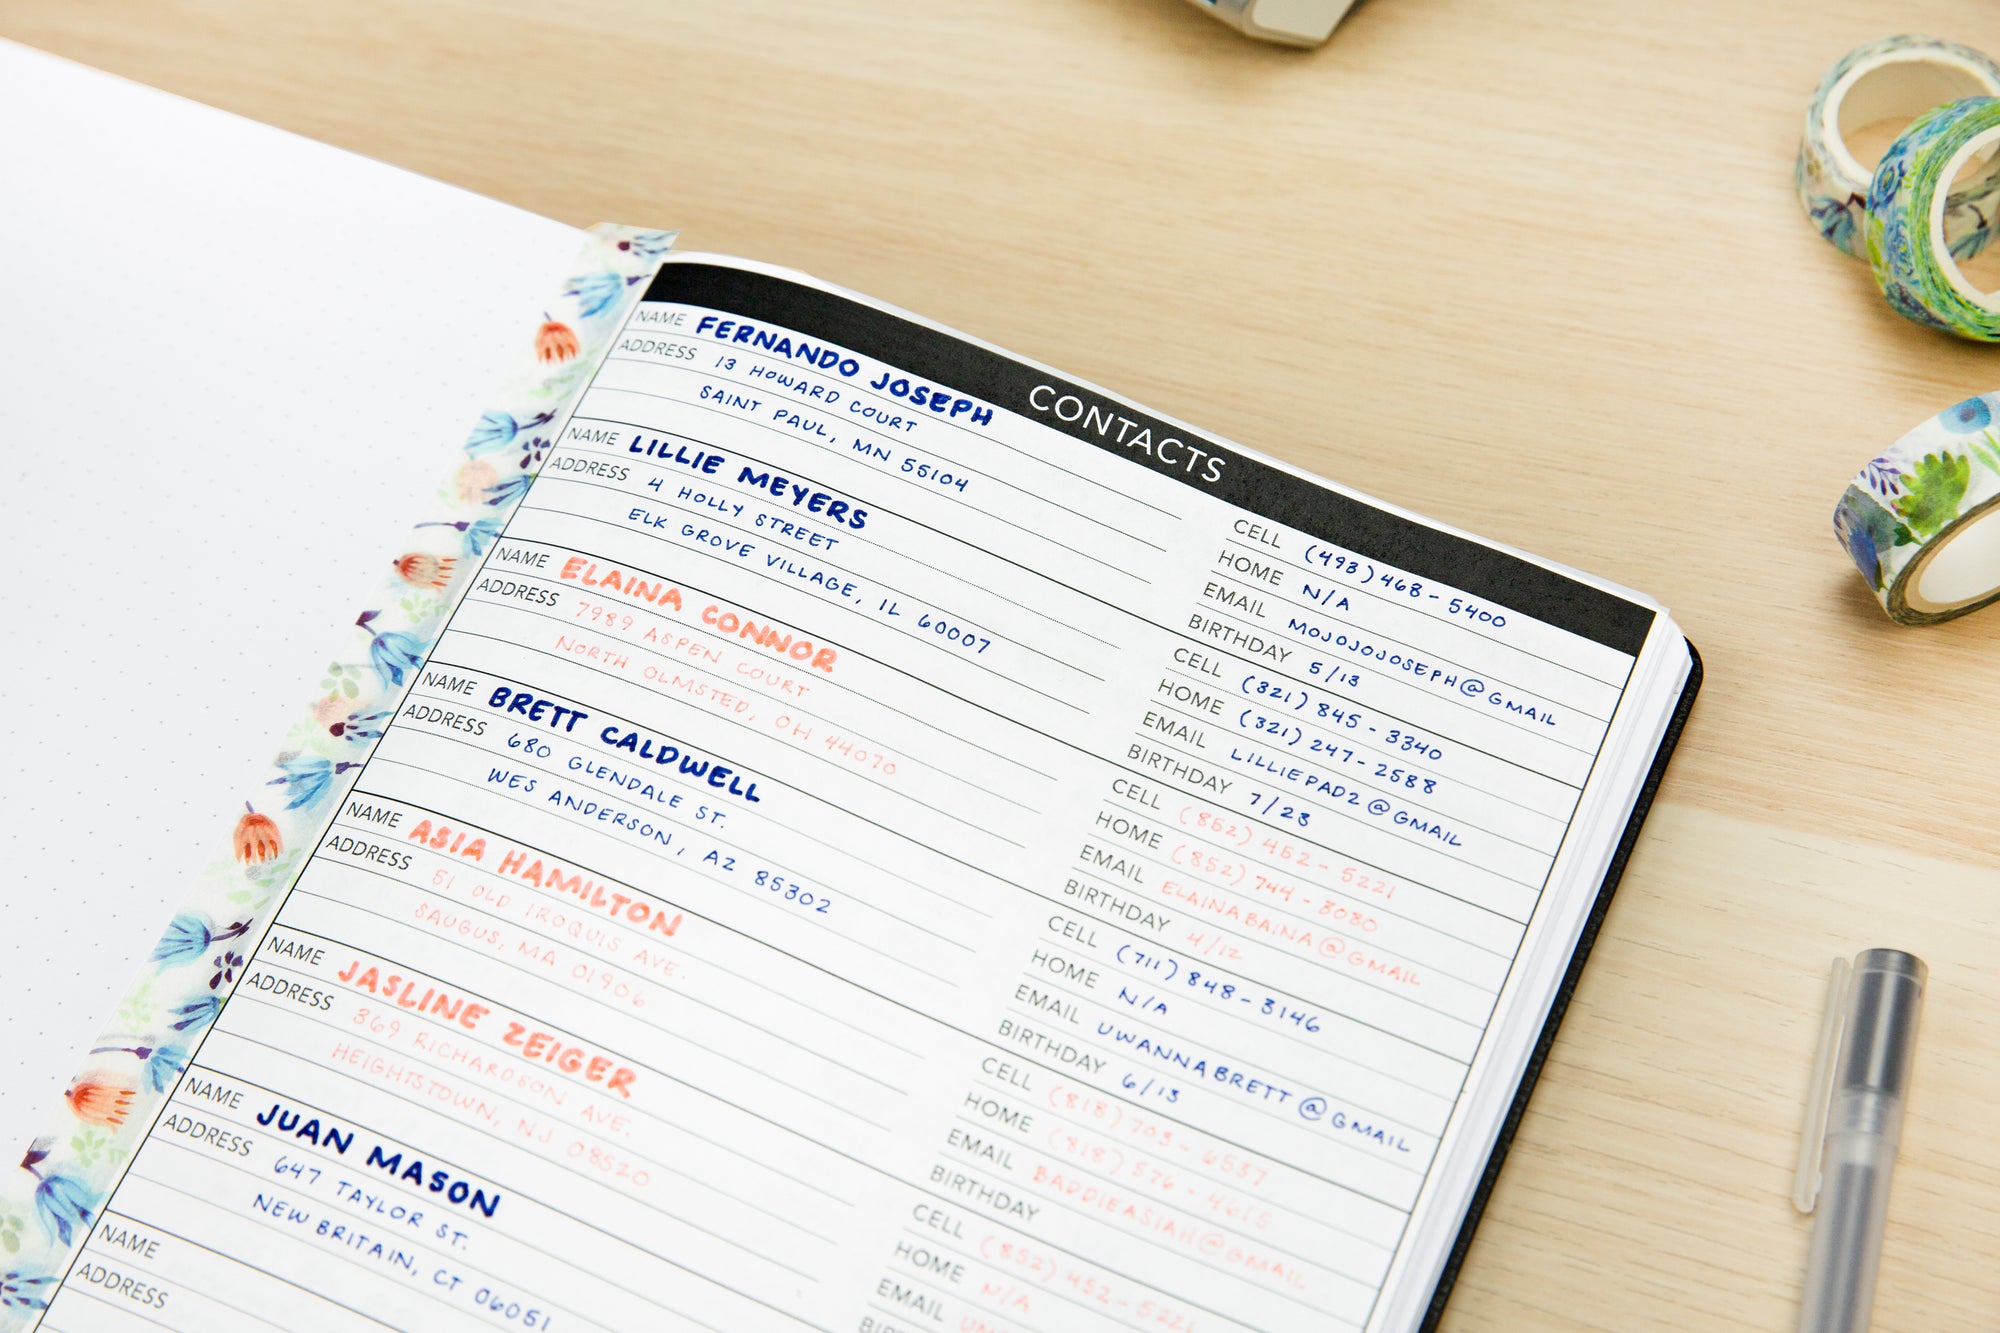 CONTACTS
NAME FERNANDO JOSEPH
ADDRESS 13 HOWARD COURT
SAINT PAUL, MN 55104
CELL (498) 468-5400
HOME N/A
EMAIL MOJOJOJOSEPH@GMAIL
BIRTHDAY 5/13
NAME LILLIE MEYERS
ADDRESS 4 HOLLY STREET
ELK GROVE VILLAGE, IL 60007
CELL (321) 845-3340
HOME (321) 247-2588
EMAIL LILLIEPAD2@GMAIL
BIRTHDAY 7/23
NAME ELAINA CONNOR
ADDRESS 7989 ASPEN COURT
NORTH OLMSTED, OH 44070
CELL (852) 452-5221
HOME (852) 744-3080
EMAIL ELAINABAINA@GMAIL
BIRTHDAY 4/12
NAME BRETT CALDWELL
ADDRESS 680 GLENDALE ST.
WES ANDERSON, AZ 85302
CELL (711) 848-3146
HOME N/A
EMAIL UWANNABRETT@GMAIL
BIRTHDAY 6/13
NAME ASIA HAMILTON
ADDRESS 51 OLD IROQUIS AVE.
SAUGUS, MA 01906
CELL (818) 703-6537
HOME (818) 576-4615
EMAIL BADDIEASIAH@GMAIL
BIRTHDAY
NAME JASLINE ZEIGER
ADDRESS 369 RICHARDSON AVE.
HEIGHTSTOWN, NJ 08520
CELL (852) 452-5221
HOME N/A
EMAIL
NAME JUAN MASON
ADDRESS 647 TAYLOR ST.
NEW BRITAIN, CT 06051
NAME
ADDRESS